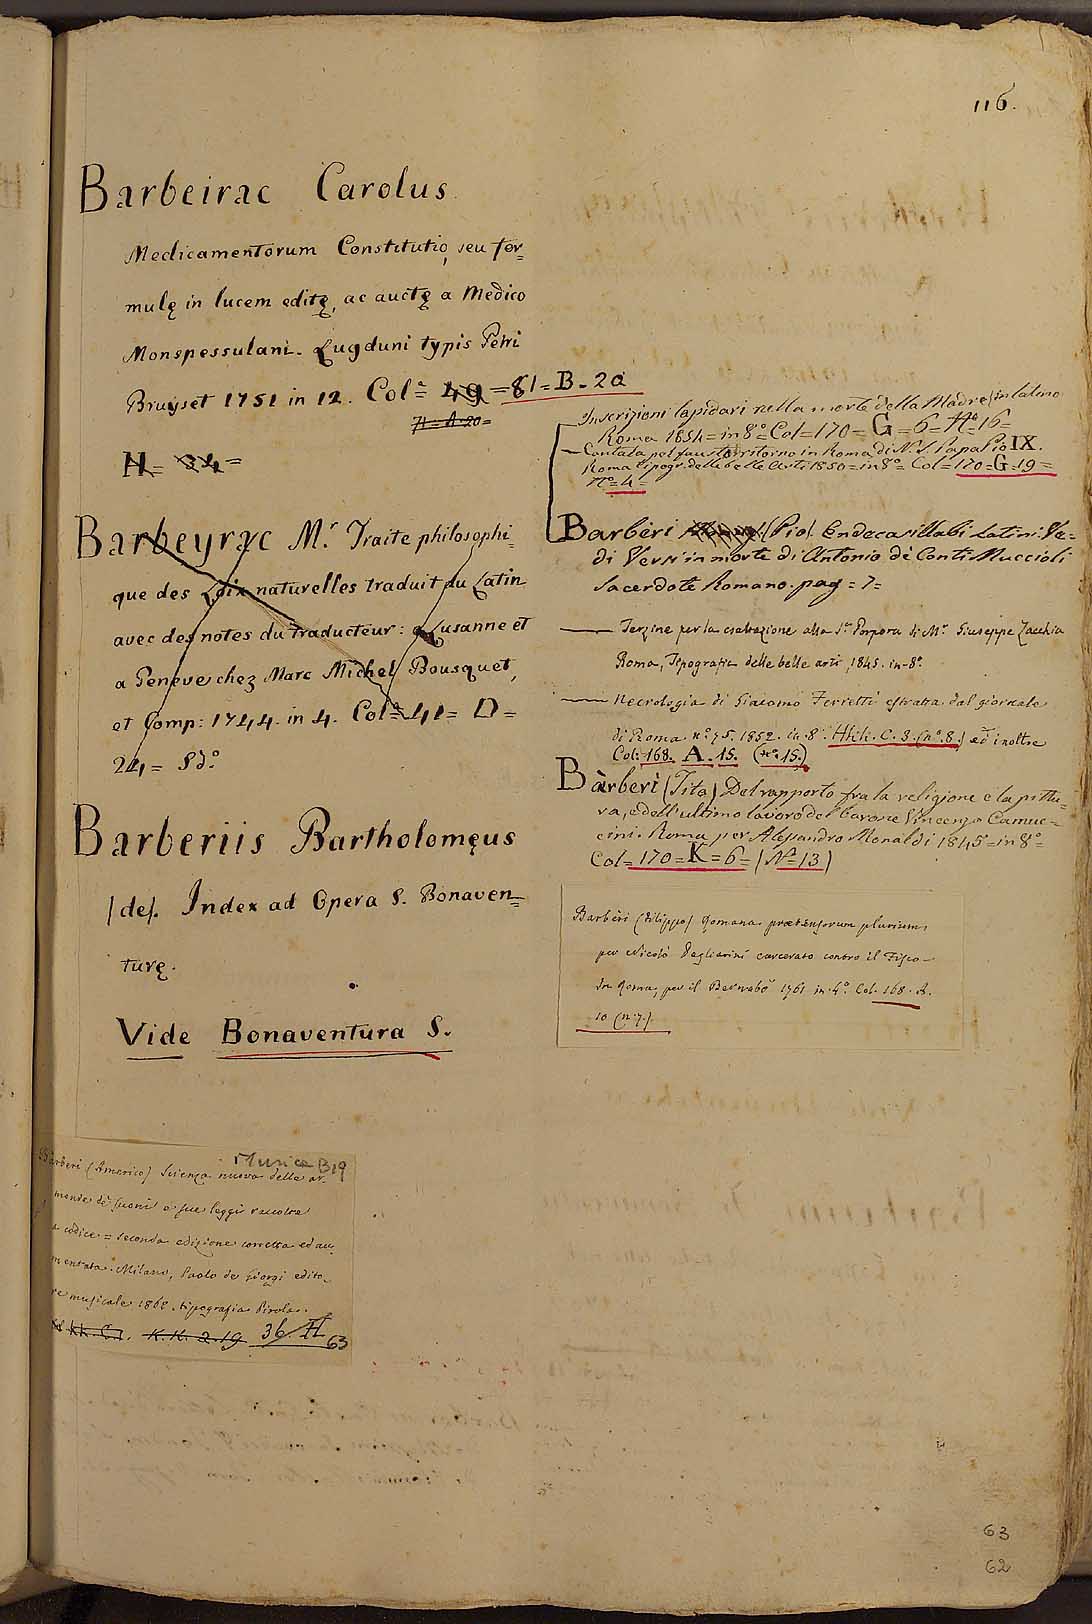 116.
Barbeirac Carolus
Medicamentorum Constitutio, seu for=
mulę in lucem editę, ac auctę a Medico
Monspessulani. Lugduni typis Petri
Bruyset 1751 in 12. Colª= 49 = 81 = B = 20
H = A 20 =
H = 34 =
Barbeyrac Mʳ. Traite philosophi=
que des Loix naturelles traduit du Latin
avec des notes du traducteur: a Lusanne et
a Geneve chez Marc Michel Bousquet,
et Comp: 1744. in 4. Colª 41 = D =
24 = Sdº
Barberiis Bartholomęus
(de). Index ad Opera S. Bonaven=
turę.
Vide Bonaventura S.
Musica B19
Barberi (Americo) Scienza nuova delle ar-
monde di suoni e sue leggi raccolte
a codice = seconda edizione corretta ed au-
mentata. Milano, Paolo de Giorgi edito-
re musicale 1862. tipografia Pirola.
K.K. 2.19 36 H 63
Inscrizioni lapidari nella morte della Madre, in latino
Roma 1854 = in 8º = Col = 170 = G = 6 = Nº 16 =
Cantata pel fausto ritorno in Roma di N. S. Papa Pio IX.
Roma tipogr. delle belle arti 1850 = in 8º = Col = 170 = G = 19 =
Nº = 4 =
Barbèri (Pio). Endecasillabi Latini: Ve=
di Versi in morte di Antonio de' Conti Muccioli
Sacerdote Romano. pag = 7 =
— Terzine per la esaltazione alla Sª. Porpora di Mʳ. Giuseppe Zacchia
Roma, Tipografia delle belle arti, 1845. in-8º.
— Necrologia di Giacomo Ferretti estratta dal giornale
di Roma nº. 75. 1852. in 8º. C. 3. (nº. 8.) ed inoltre
Col: 168. A. 15. (nº. 15.)
Bàrberi (Tito) Del rapporto fra la religione e la pittu=
ra, e dell'ultimo lavoro del barone Vincenzo Camuc=
cini. Roma per Alessandro Monaldi 1845 = in 8º =
Col = 170 = K = 6 = (Nº 13)
Barbèri (Filippo) Romana prætensorum plurium,
per Nicolò Pagliarini carcerato contro il Fisco-
In Roma, per il Bernabò 1761 in 4º. Col. 168. A.
10 (n: 7.)
63
62